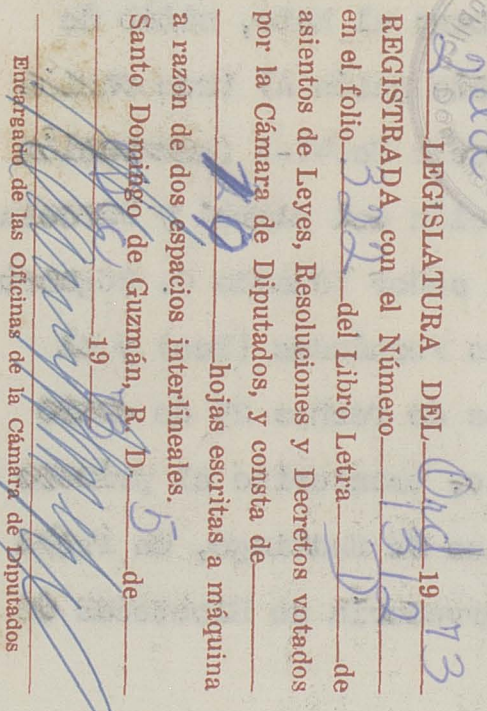 2da LEGISLATURA DEL Ord 1973
REGISTRADA con el Número 1312
en el folio 322 del Libro Letra D de
asientos de Leyes, Resoluciones y Decretos votados
por la Cámara de Diputados, y consta de
10 hojas escritas a máquina
a razón de dos espacios interlineales.
Santo Domingo de Guzmán, R. D. 5 de
1973
Encargado de las Oficinas de la Cámara de Diputados